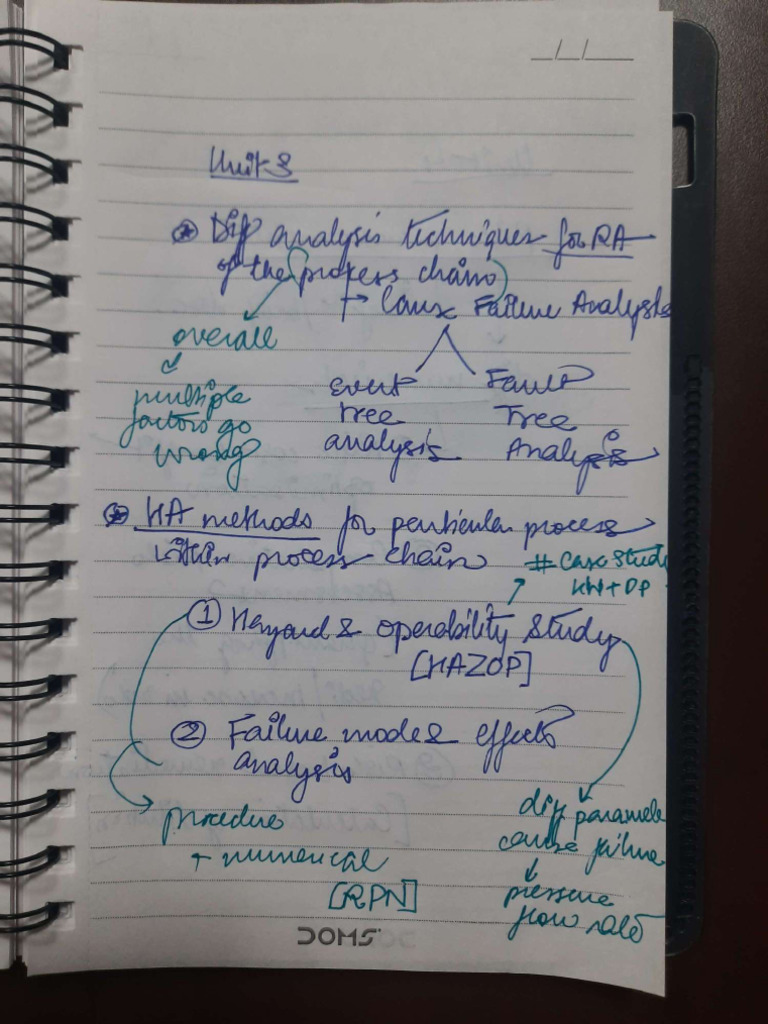 __/__/____
Unit 3
Diff analysis techniques for RA
of the process chain
→ Cause Failure Analysis
overall
multiple
factors go
wrong
Event
tree
analysis
Fault
Tree
Analysis
HA methods for particular process
within process chain
# Case Study
HW + DP
① Hazard & operability study
[HAZOP]
② Failure mode & effects
analysis
procedure
+ numerical
[RPN]
diff paramete
cause failure
pressure
flow rate
DOMS